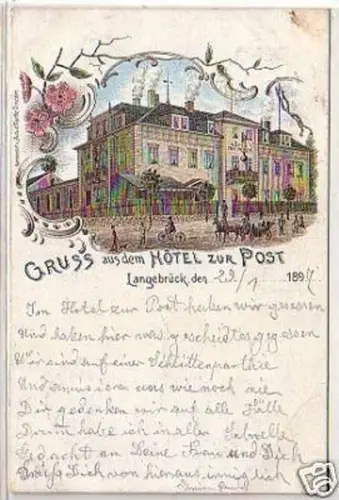 GRUSS aus dem HÔTEL ZUR POST
Langebrück, den 29/1 1897
Im Hotel zur Post haben wir gesessen
Und haben hier was gescheidtes gegessen
Wir sind auf einer Schlittenparthie
Und amüsieren uns wie noch nie
Die gedenken wir auf alle Fälle
Drum habe ich in aller Schnelle
Gedacht an Deine Frau und Dich
Dich von hieraus innig lich